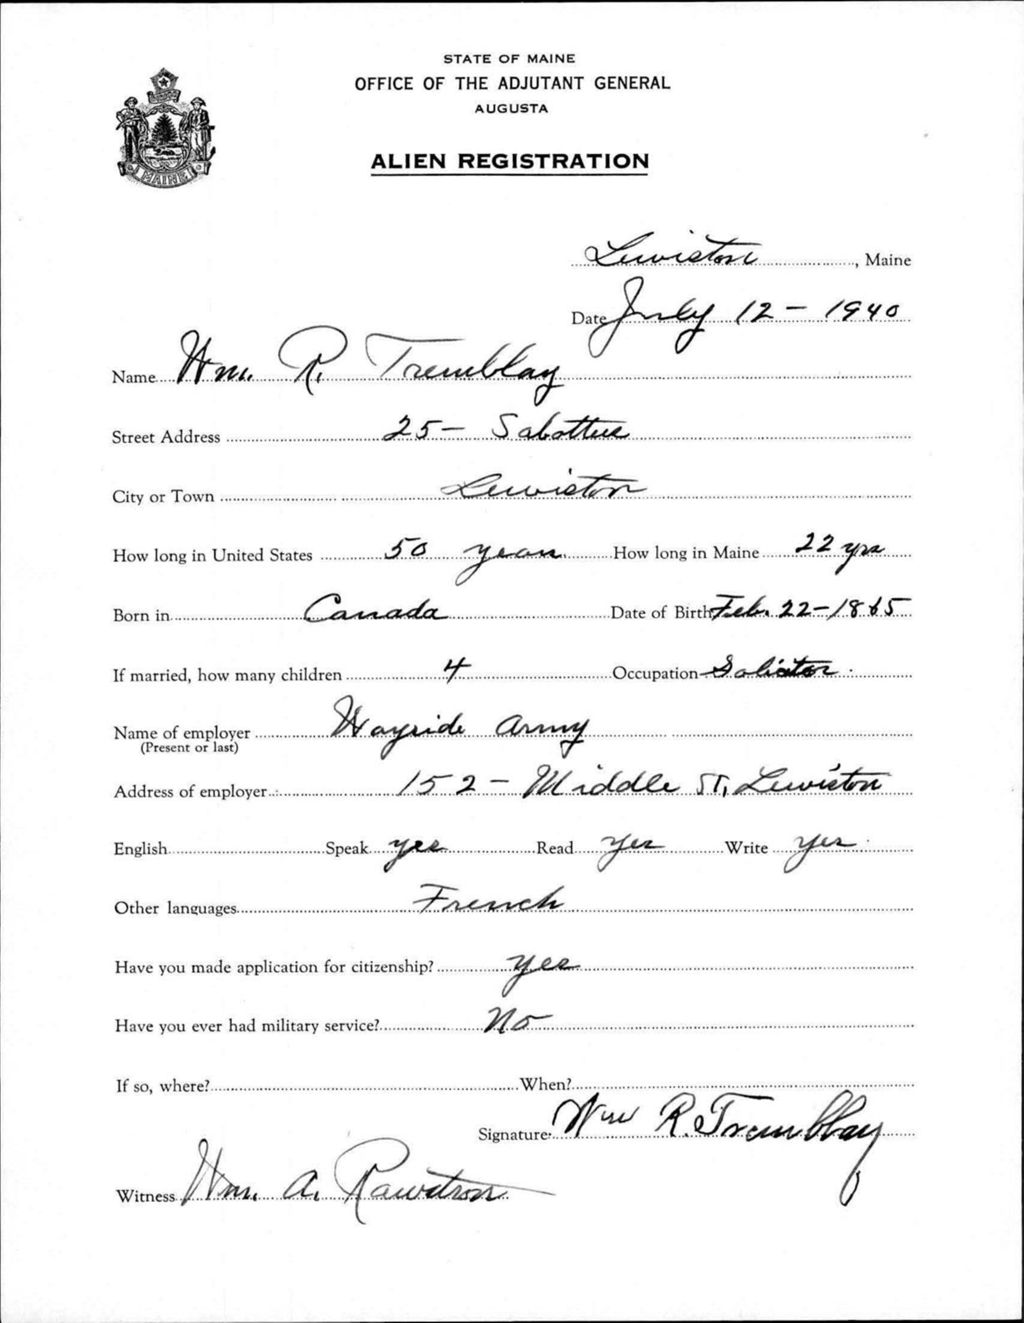 STATE OF MAINE
OFFICE OF THE ADJUTANT GENERAL
AUGUSTA
ALIEN REGISTRATION
MAINE
Lewiston, Maine
Date July 12 - 1940
Name Wm. R. Tremblay
Street Address 25 - Sabattus
City or Town Lewiston
How long in United States 50 years How long in Maine 22 yrs
Born in Canada Date of Birth Feb. 22 - 1865
If married, how many children 4 Occupation Soliciter
Name of employer Wayside Army
(Present or last)
Address of employer 152 - Middle St, Lewiston
English Speak yes Read Yes Write Yes
Other languages French
Have you made application for citizenship? Yes
Have you ever had military service? No
If so, where? When?
Signature Wm R. Tremblay
Witness Wm. A. Rawstron